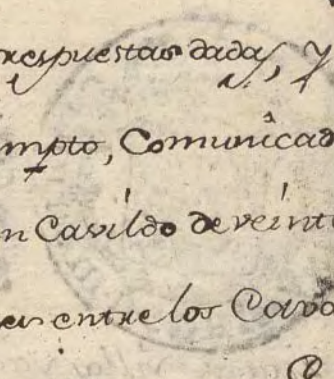 respuestas dadas, y
mpto, Comunicad
n Cavildo de veint
es entre los Cava